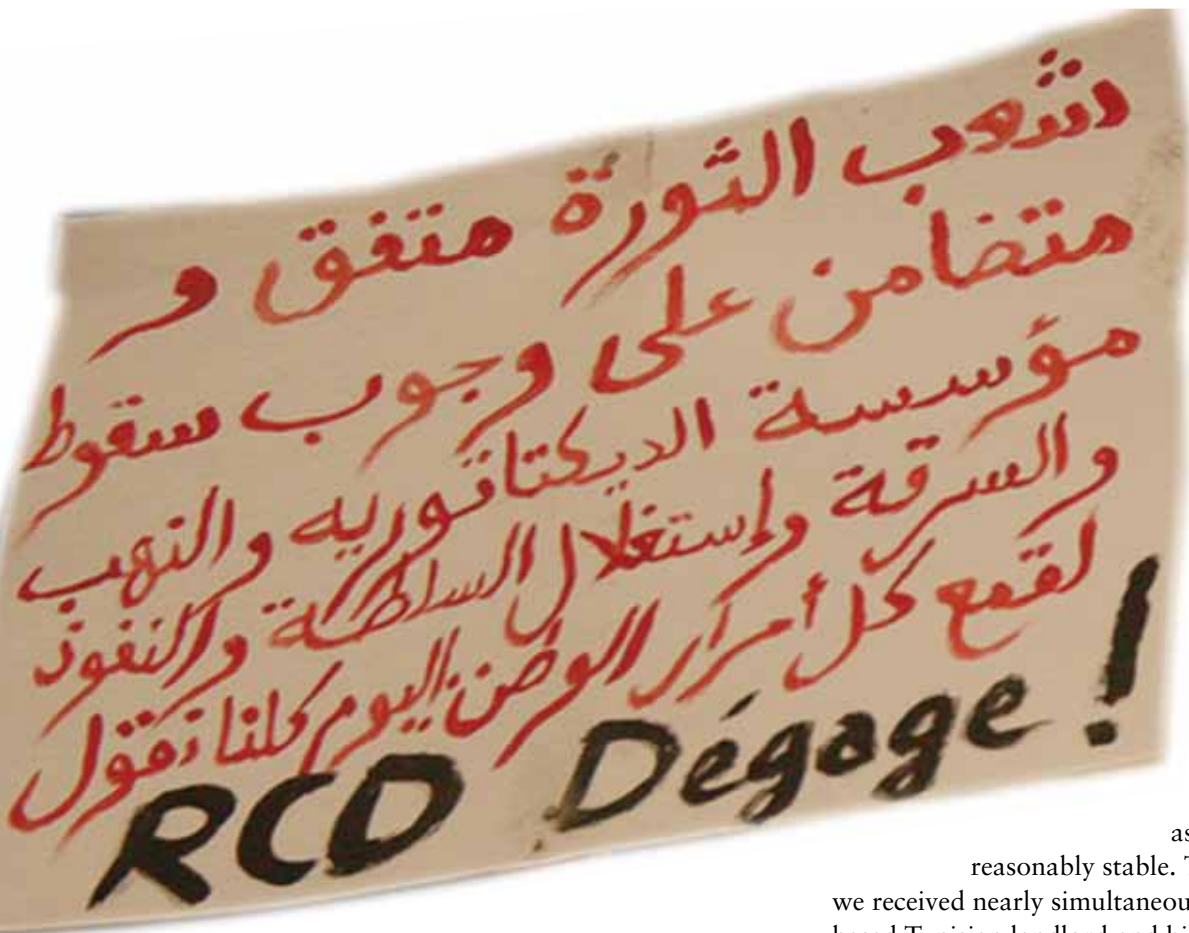 شعب الثورة متفق و
متضامن على وجوب سقوط
مؤسسة الديكتاتوريه والنهب
والسرقة وإستغلال السلطة والنفوذ
لقمع كل أمرار الوطن اليوم كلنا نقول
RCD Dégage !
reasonably stable.
we received nearly